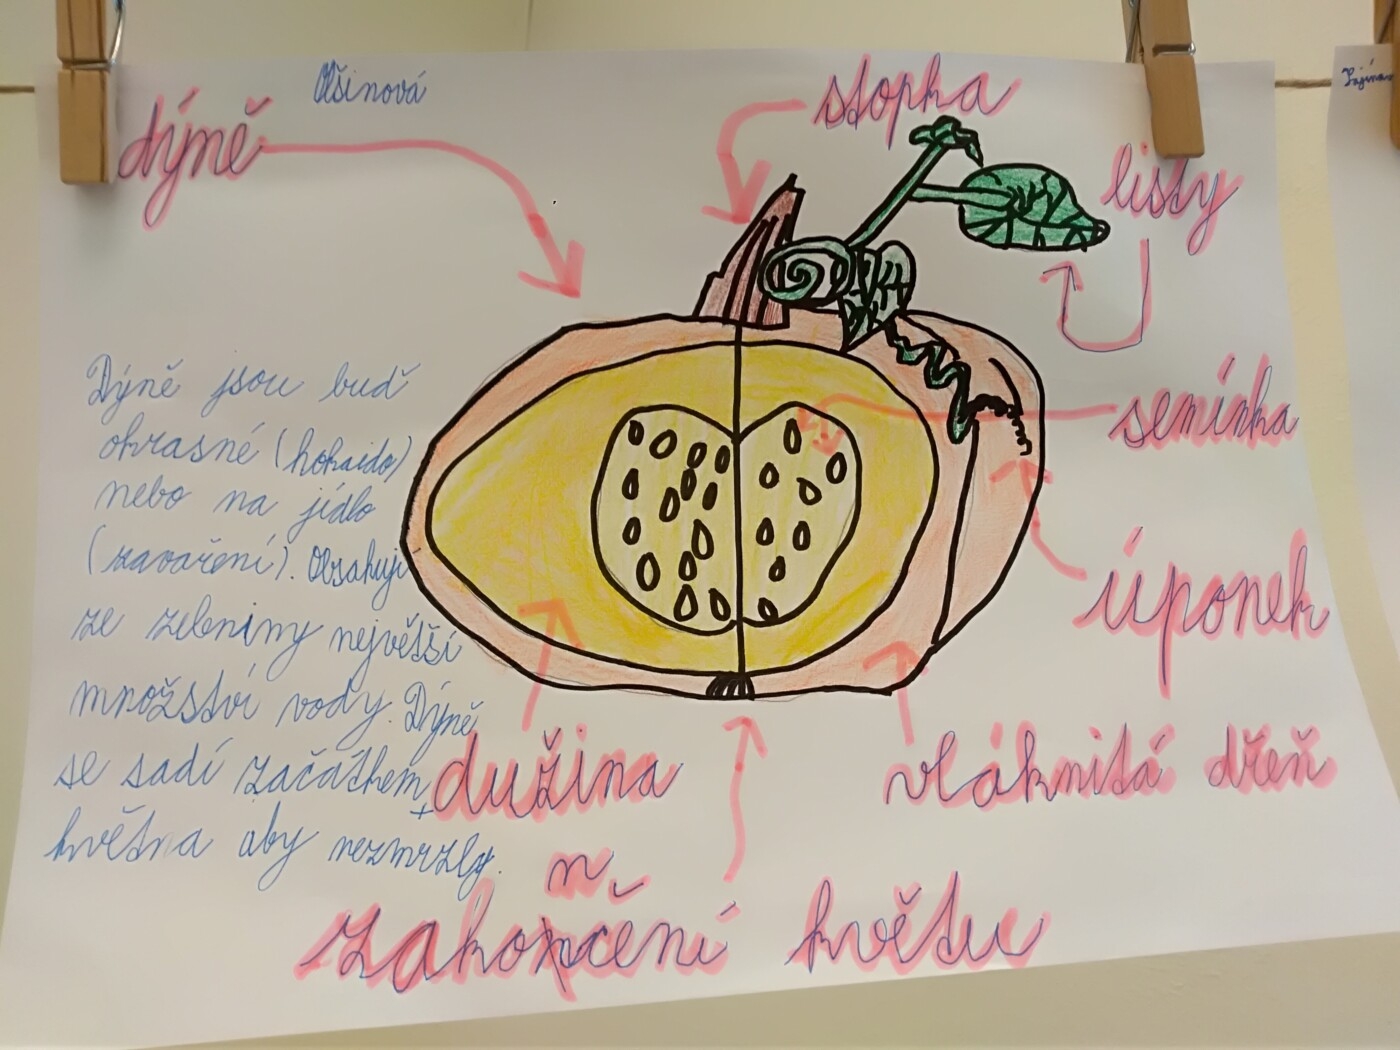 Olšinová
dýně
stopka
listy
semínka
úponek
vláknitá dřeň
dužina
n
zakončení květu
Dýně jsou buď
okrasné (hokaido)
nebo na jídlo
(zavaření). Obsahují
ze zeleniny největší
množství vody. Dýně
se sadí začátkem
května aby nezmrzly.